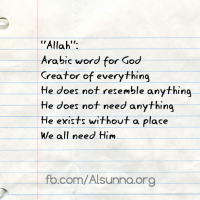 "Allah":
Arabic word for God
Creator of everything
He does not resemble anything
He does not need anything
He exists without a place
We all need Him
fb.com/Alsunna.org